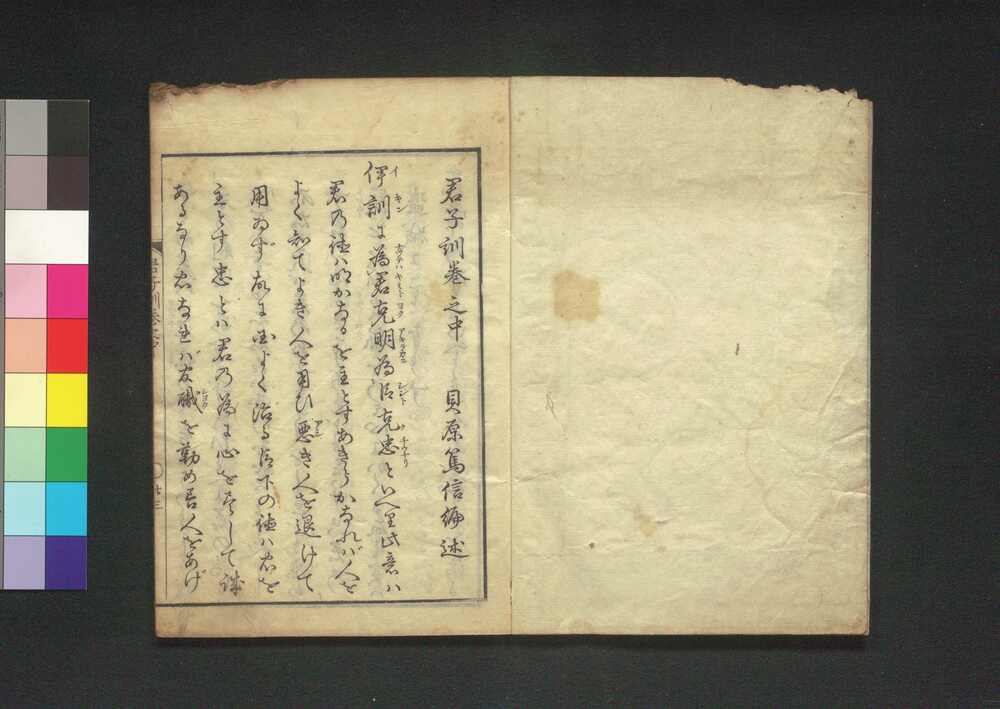 君子訓卷之中　貝原篤信編述
伊訓に為君克明為臣克忠といへり此意ハ
君の徳ハ明かなるを主とすあきらかなれバ人を
よく知てよき人を用ひ悪き人を退けて
用ゐず故に国よく治る臣下の徳ハ忠を
主とす忠とハ君の為に心を尽して誠
あるなり忠なれバ職を勤め善人をあげ
廿三